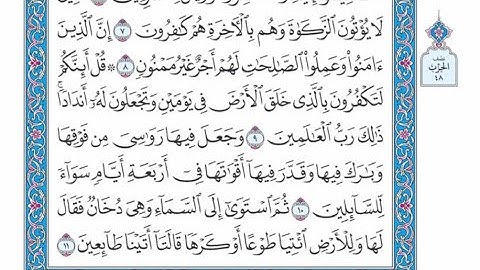 لَا يُؤْتُونَ ٱلزَّكَوٰةَ وَهُم بِٱلْءَاخِرَةِ هُمْ كَٰفِرُونَ ٧ إِنَّ ٱلَّذِينَ
ءَامَنُوا۟ وَعَمِلُوا۟ ٱلصَّٰلِحَٰتِ لَهُمْ أَجْرٌ غَيْرُ مَمْنُونٍ ٨ ۞ قُلْ أَئِنَّكُمْ
لَتَكْفُرُونَ بِٱلَّذِى خَلَقَ ٱلْأَرْضَ فِى يَوْمَيْنِ وَتَجْعَلُونَ لَهُۥٓ أَندَادًا ۚ
ذَٰلِكَ رَبُّ ٱلْعَٰلَمِينَ ٩ وَجَعَلَ فِيهَا رَوَٰسِىَ مِن فَوْقِهَا
وَبَٰرَكَ فِيهَا وَقَدَّرَ فِيهَآ أَقْوَٰتَهَا فِىٓ أَرْبَعَةِ أَيَّامٍ سَوَآءً
لِّلسَّآئِلِينَ ١٠ ثُمَّ ٱسْتَوَىٰٓ إِلَى ٱلسَّمَآءِ وَهِىَ دُخَانٌ فَقَالَ
لَهَا وَلِلْأَرْضِ ٱئْتِيَا طَوْعًا أَوْ كَرْهًا قَالَتَآ أَتَيْنَا طَآئِعِينَ ١١
نصف
الحزب
٤٨